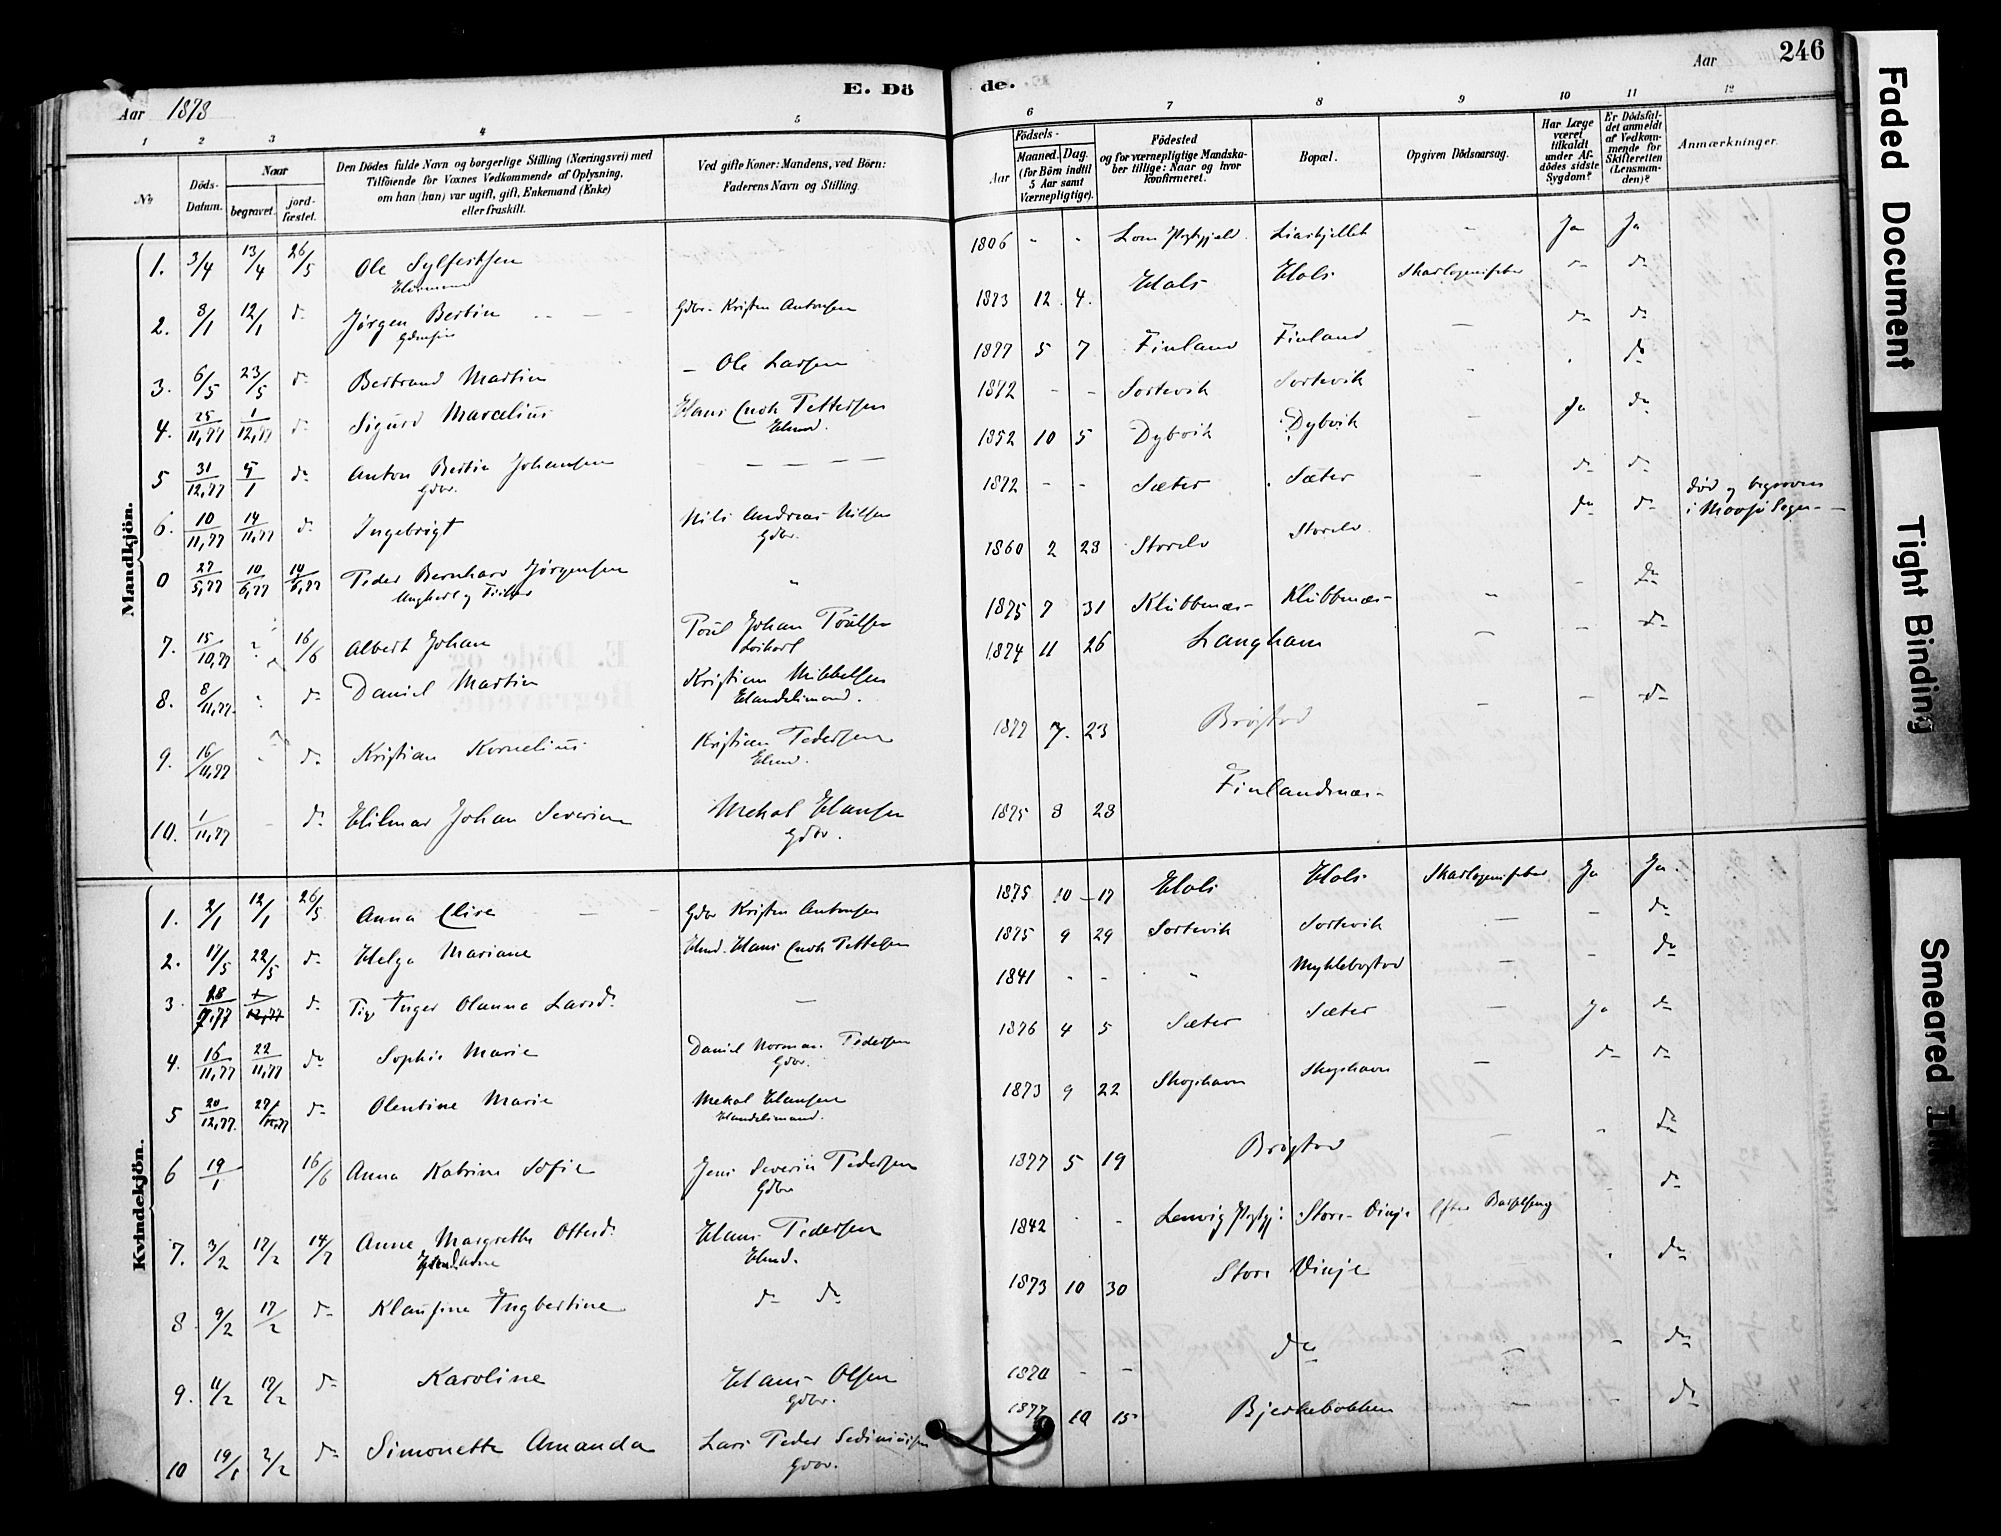 246
Aar 1878
E. Dö
de.
Aar
1 2 3 4 5 6 7 8 9 10 11 12
No
Döds-Datum.
Naar
begravet.
jord-fæstet.
Den Dödes fulde Navn og borgerlige Stilling (Næringsvei) med
Tilföiende for Voxnes Vedkommende af Oplysning,
om han (hun) var ugift, gift, Enkemand (Enke)
eller fraskilt.
Ved gifte Koner: Mandens, ved Börn:
Faderens Navn og Stilling.
Födsels-
Aar
Maaned. Dag.
(for Börn indtil
5 Aar samt
Værnepligtige).
Födested
og for værnepligtige Mandska-
ber tillige: Naar og hvor
konfirmeret.
Bopæl.
Opgiven Dödsaarsag.
Har Læge
været
tilkaldt
under Af-
dödes sidste
Sygdom?
Er Dödsfal-
det anmeldt
af Vedkom-
mende for
Skifteretten
(Lensman-
den)?
Anmærkninger.
Mandkjön.
1. 3/4 13/4 26/5 Ole Sylfestsen 1806 - - Lom Prgjeld. - Ja Ja
2. 3/1 12/1 do Jørgen Bertin Gdbr. Kristen Antonsen 1873 12 4 Hals Hals Skarlagensfeber do do
3. 6/5 23/5 do Bertrand Martin - Ole Larsen 1877 5 7 Finland Finland - do do
4. 25/11,77 1/12,77 do Sigurd Marcelius Hans Cnoh Pettersen 1872 - - Sortevik Sortevik do
5 31/12,77 5/1 do Anton Bertin Johansen Gdbr. - - - - 1852 10 5 Dybvik Dybvik - Ja do
6. 10/11,77 14/11,77 do Ingebrigt Nils Andreas Nilsen Gdbr. 1872 - - Sæter Sæter - do do
0 27/5,77 10/6,77 14/6,77 Peder Bernhard Jørgensen Ungkarl og Fisker 1860 2 23 Storelv Storelv do do død og begraven
7. 15/10,77 16/6 Albert Johan Poul Johan Poulsen 1875 7 31 Klubbenæs Klubbenæs - do
8. 8/11,77 do Daniel Martin Kristian Mikkelsen Handelsmand. 1874 11 26 Langhavn - - do
9. 16/11,77 do Kristian Kornelius Kristian Pedersen Hmd. 1877 7. 23 Brøstad - - do
10. 1/11,77 - do Hilmar Johan Severin Mekal Hansen Gdbr. 1875 3 23 Finlandsnæs
Kvindekjön.
1. 2/1 12/1 26/5 Anna Elise Gdbr Kristen Antonsen 1875 10 - 17 Hals Hals Skarlagensfeber Ja Ja
2. 17/5 22/5 do Helga Mariane Hmd. Hans Cnoh Pettersen 1875 9 29 Sortevik Sortevik - - do
3. 28/7,77 do Pig. Inger Olanna Larsd. - 1841 - - " Myklebostad - - do
4. 16/11,77 22/11,77 do Sophie Marie Daniel Norman Pedersen Gdbr. 1876 4 5 Sæter Sæter - Ja do
5 20/12,77. do Olentine Marie Mekal Hansen Handelsmand. 1873 9 22 Skogshavn Skogshavn - do do
6 19/1 16/6 Anna Katrine Sofie Jens Severin Pedersen Gdbr 1877 5 19 Brøstad - - do
7. 3/2 17/2 14/7 Anne Margrethe Ottesd. Hans Pedersen Hmd. 1842 - - Lenvig Prgj: Store-Vinje Efter Barselseng - do
8 9/2 17/2 do Klausine Ingbertine do do 1873 10 30 Store Vinje do
9. 11/2 17/2 do Karoline Hans Olsen Gdbr. - - do - - do
10 19/1 2/2 do Simonette Amanda Lars Peder Gdbr. 1877 10 15 Bjerkebakken - - do
Faded Document
Tight Binding
Smeared Ink